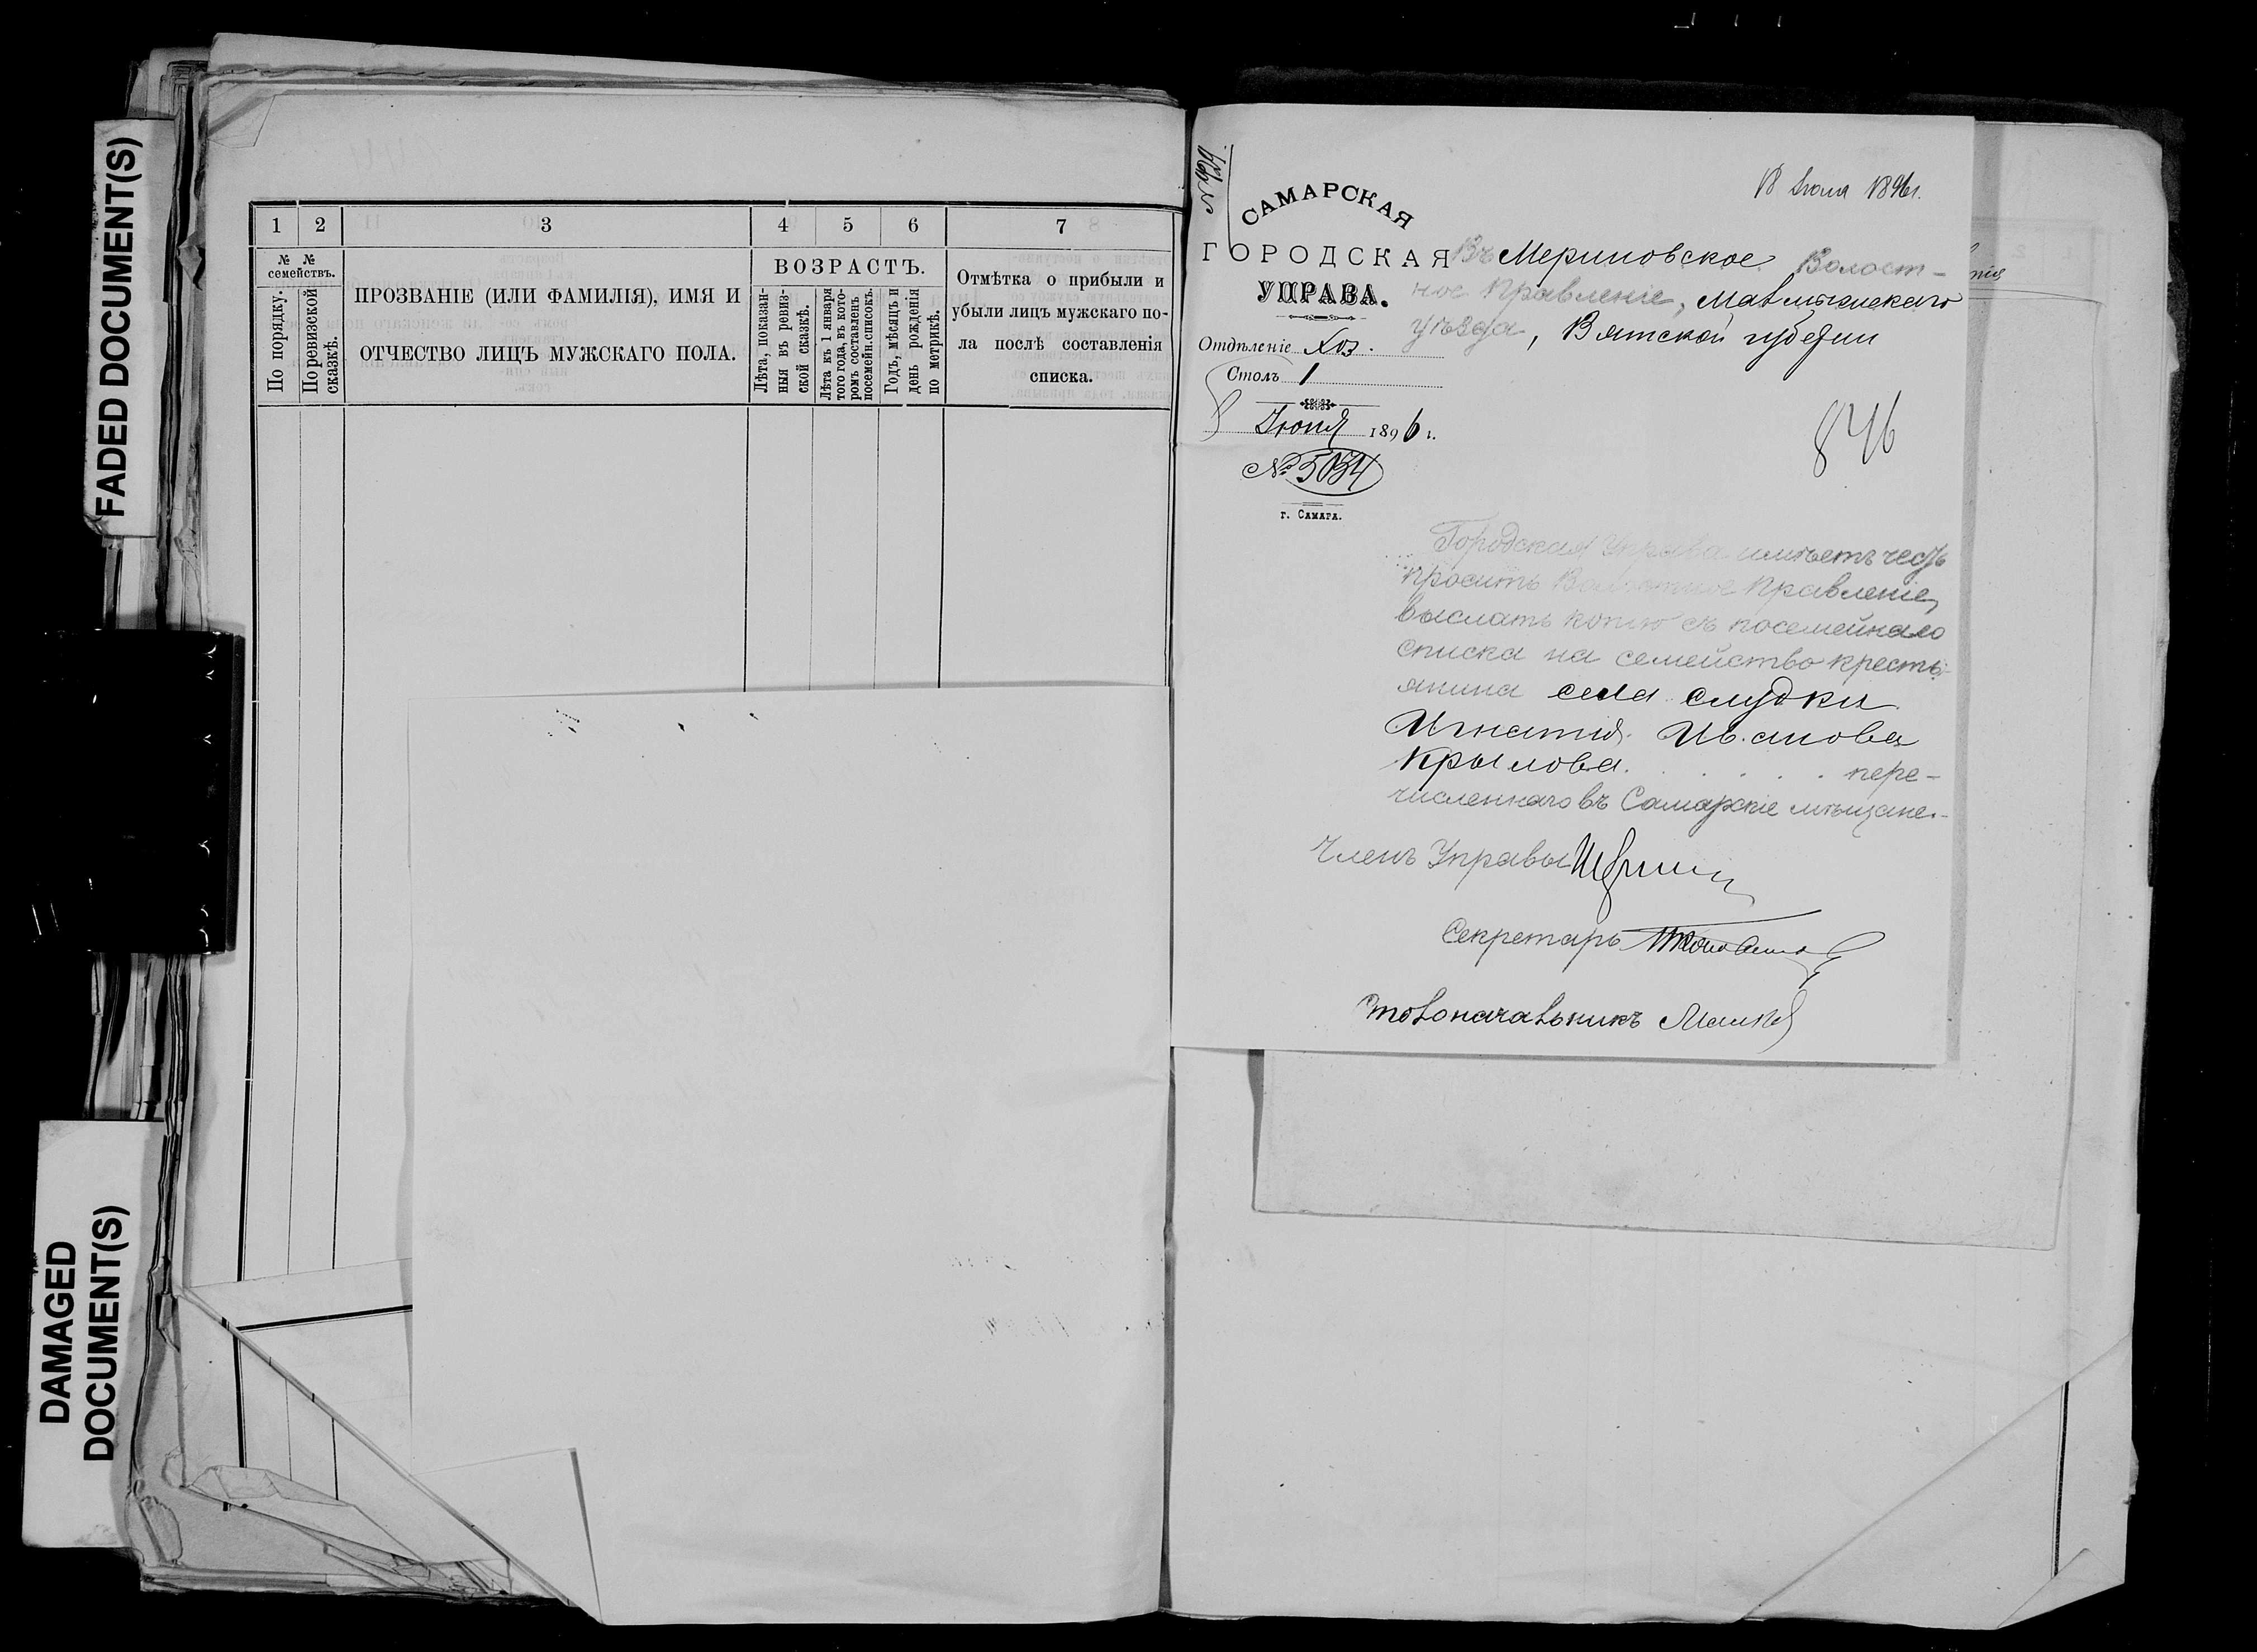 FADED DOCUMENT(S)
DAMAGED
DOCUMENT(S)
1 2 3 4 5 6 7
№ №
семействъ.
По порядку.
По ревизской
сказкѣ.
ПРОЗВАНІЕ (ИЛИ ФАМИЛІЯ), ИМЯ И
ОТЧЕСТВО ЛИЦЪ МУЖСКАГО ПОЛА.
ВОЗРАСТЪ.
Лѣта, показан-
ныя въ ревиз-
ской сказкѣ.
Лѣта къ 1 января
того года, въ кото-
ромъ составленъ
посемейн. списокъ.
Годъ, мѣсяцъ и
день рожденія
по метрикѣ.
Отмѣтка о прибыли и
убыли лицъ мужскаго по-
ла послѣ составленія
списка.
САМАРСКАЯ
ГОРОДСКАЯ
УПРАВА.
Отдѣленіе Хоз.
Столъ 1
8 Іюня 1896 г.
№ 5034
г. САМАРА.
18 1896 г.
Въ Мериновское Волост-
ное Правленіе, Малмыжскаго
уѣзда, Вятской губерніи
846
Городская Управа имѣетъ честь
просить Волостное Правленіе,
выслать копію съ посемейнаго
списка на семейство кресть-
янина села Слудки
Игнатія Иванова
Крылова. . . . . . пере-
численнаго въ Самарскіе мѣщане.
Членъ Управы
Секретарь
Столоначальникъ